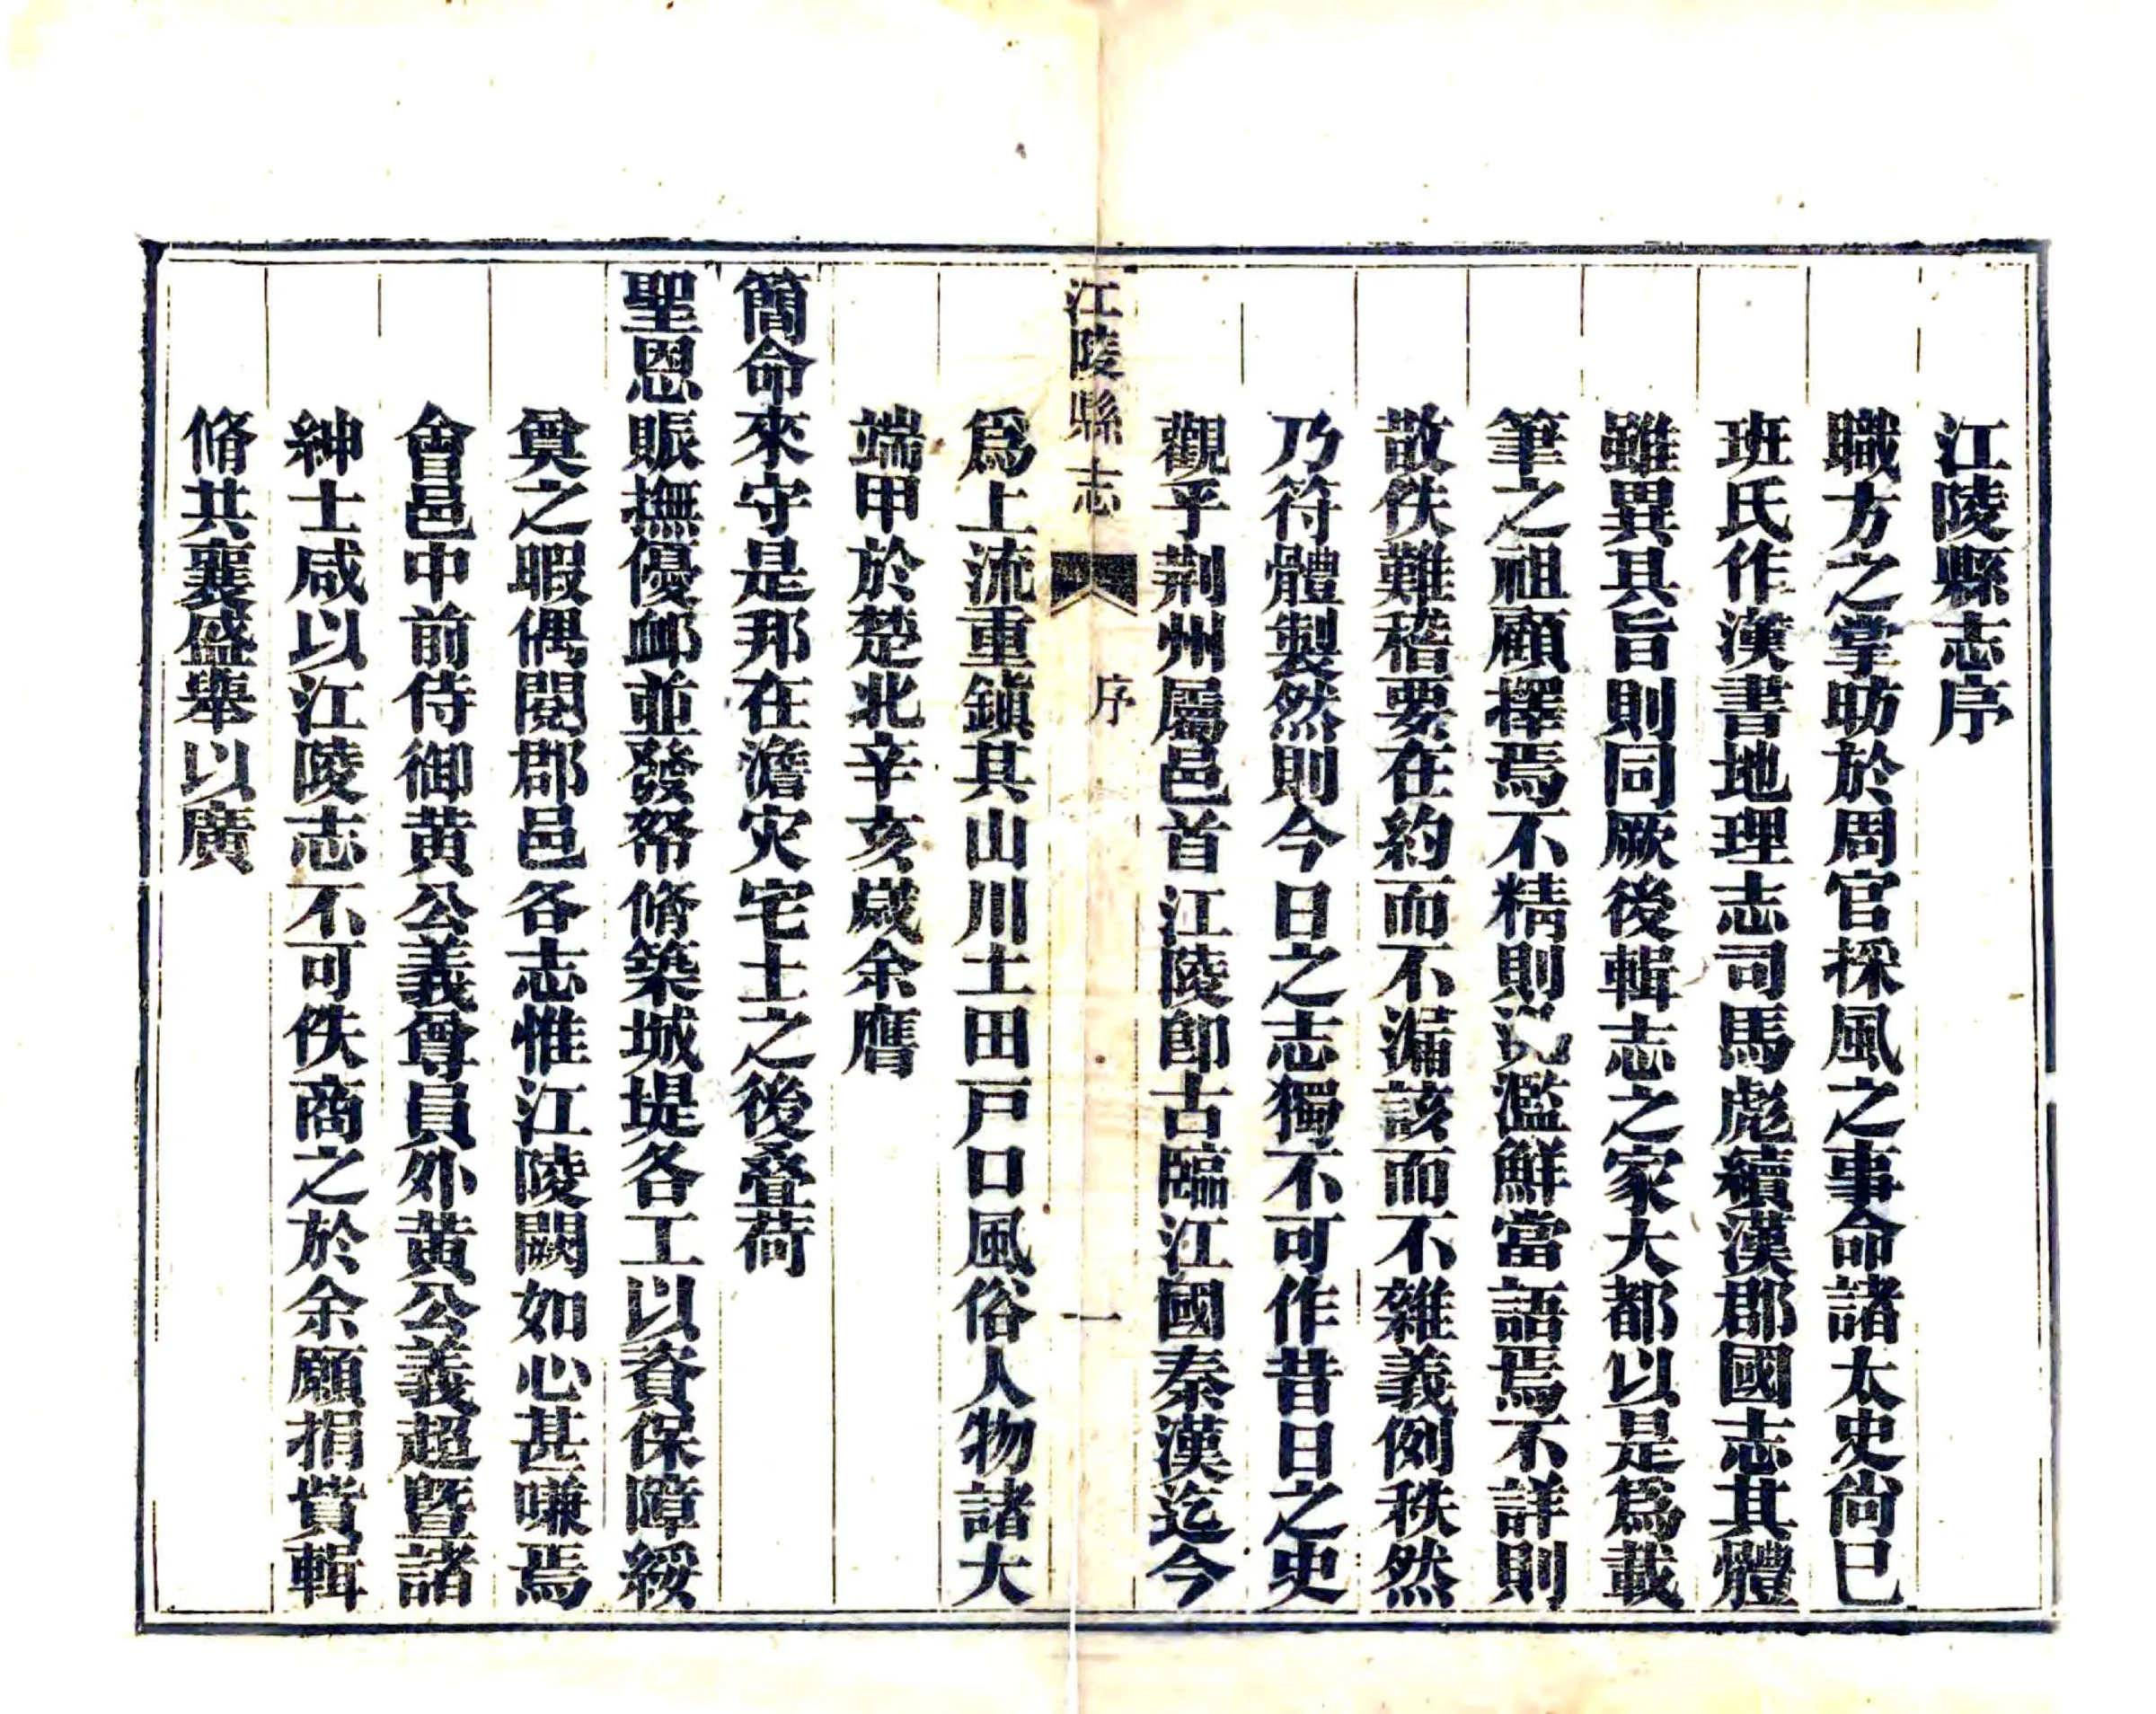 江陵縣志序
職方之掌昉於周官採風之事命諸太史尚已
班氏作漢書地理志司馬彪續漢郡國志其體
雖異其旨則同厥後輯志之家大都以是爲載
筆之祖顧擇焉不精則濫鮮當語焉不詳則
散佚難稽要在約而不漏該而不雜義例秩然
乃符體製然則今日之志獨不可作昔日之史
觀乎荆州屬邑首江陵即古臨江國秦漢迄今
江陵縣志 序 一
爲上流重鎮其山川土田戸口風俗人物諸大
端甲於楚北辛亥歲余膺
簡命來守是邦在澹灾宅土之後叠荷
聖恩賑撫優卹並發帑脩築城堤各工以資保障綏
奠之暇偶閱郡邑各志惟江陵闕如心甚嗛焉
會邑中前侍御黄公義尊員外黄公義超暨諸
紳士咸以江陵志不可佚商之於余願捐貲輯
脩共襄盛舉以廣